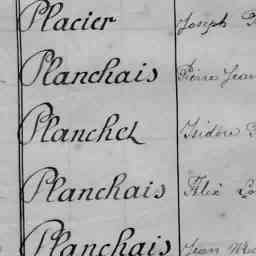 Placier Joseph
Planchais Pierre Jean
Planchet Isidore
Planchais Alex
Planchais Jean